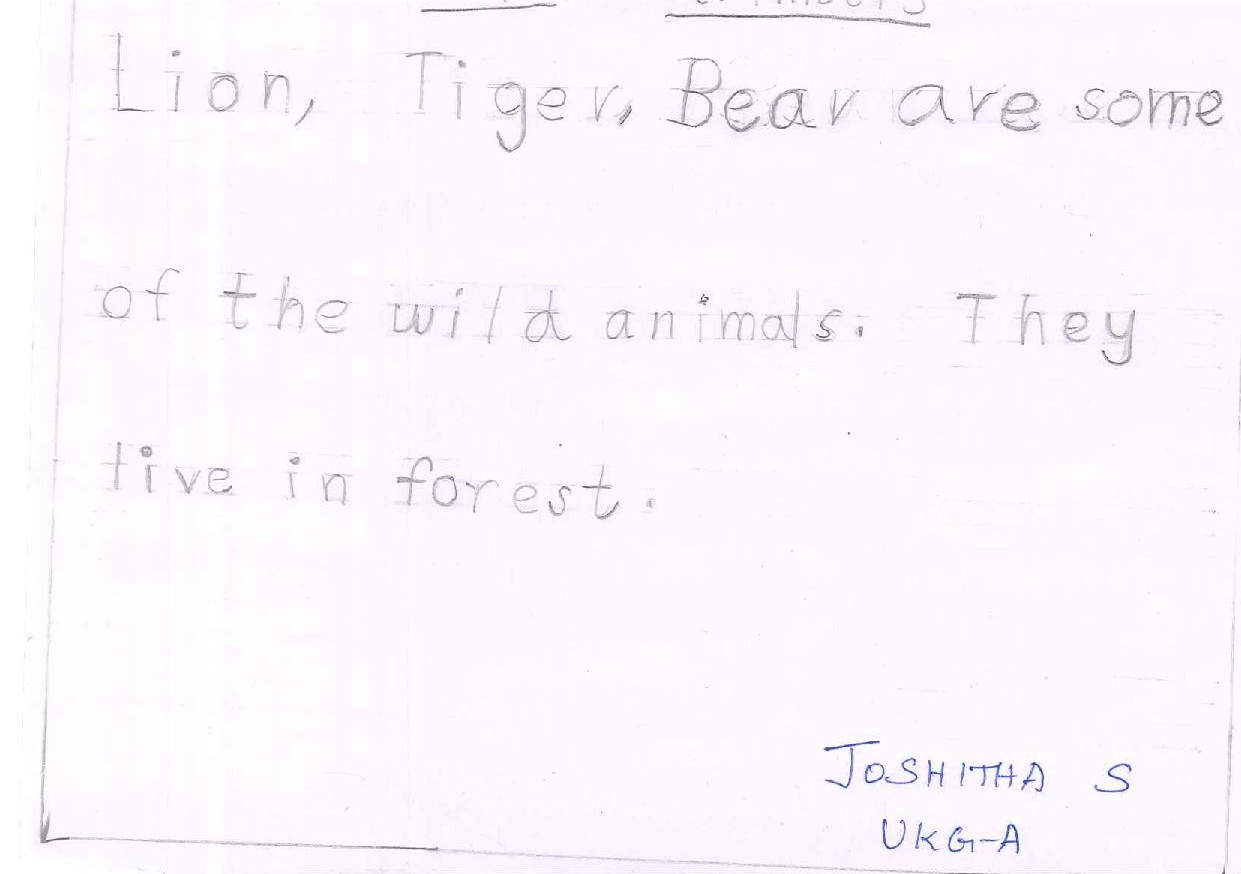 Lion, Tiger, Bear are some
of the wild animals. They
live in forest.
JOSHITHA S
UKG-A